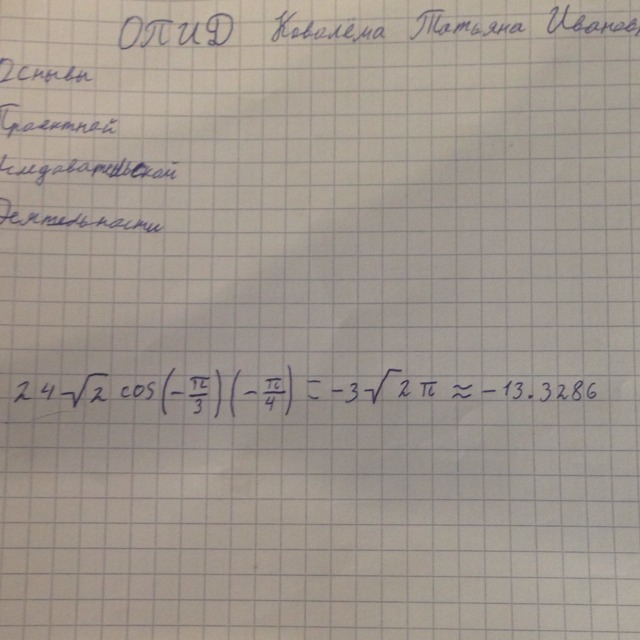 ОПИД Ковалёма Татьяна Иванов
Основы
Проектной
следовательской
Деятельности
24√2 cos(-π/3)(-π/4) = -3√2π ≈ -13.3286